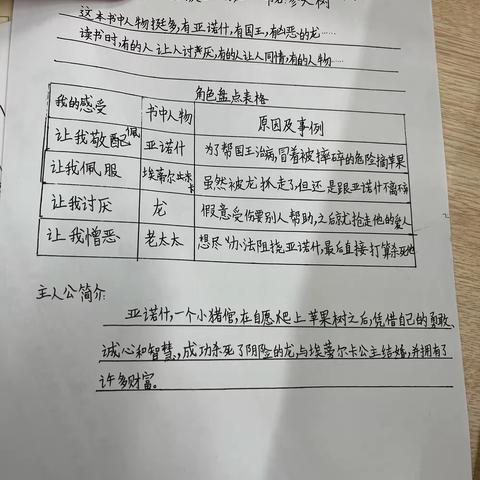 这本书中人物挺多,有亚诺什,有国王,有凶恶的龙……
读书时,有的人让人讨厌,有的人让人同情,有的人物
角色盘点表格
我的感受 书中人物 原因及事例
让我敬佩 亚诺什 为了帮国王治病,冒着被摔碎的危险摘苹果
让我佩服 埃蒂尔 虽然被龙抓走了,但还是跟亚诺什不离不
让我讨厌 龙 假意受伤要别人帮助,之后就抢走他的爱人
让我憎恶 老太太 想尽办法阻挠亚诺什,最后直接打算杀死他
主人公简介:
亚诺什,一个小猪倌,在自愿爬上苹果树之后,凭借自己的勇敢、
诚心和智慧,成功杀死了阴险的龙,与埃蒂尔卡公主结婚,并拥有了
许多财富。